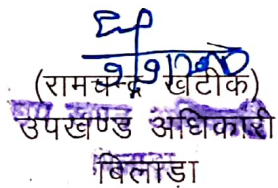 (रामचन्द्र खटीक)
उपखण्ड अधिकारी
बिलाड़ा